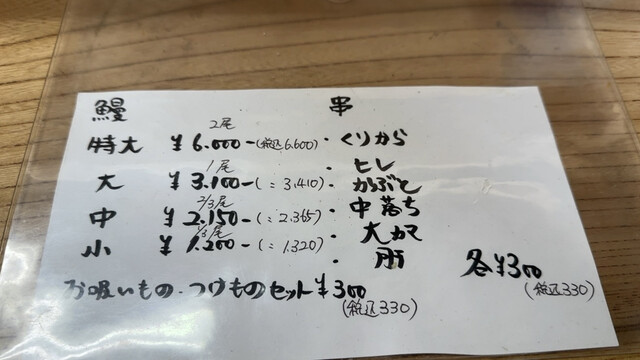 鰻 串
2尾
特大 ¥6.000-(税込6.600)・くりから
1尾 ・ヒレ
大 ¥3.100-(〃3.410)・からぶと
2/3尾 ・中落ち
中 ¥2.150-(〃2.365)
1/3尾 ・大カマ
小 ¥1.200-(〃1.320)
・肝 各¥300
(税込330)
お吸いもの・つけものセット¥300
(税込330)